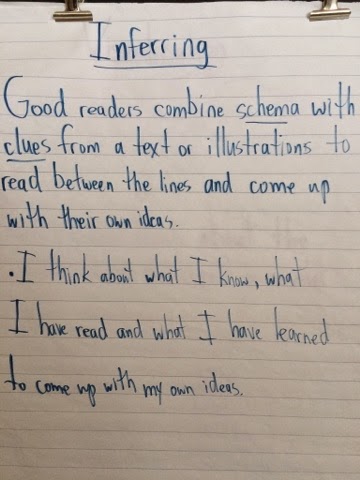 Inferring
Good readers combine schema with
clues from a text or illustrations to
read between the lines and come up
with their own ideas.
.I think about what I know, what
I have read and what I have learned
to come up with my own ideas.